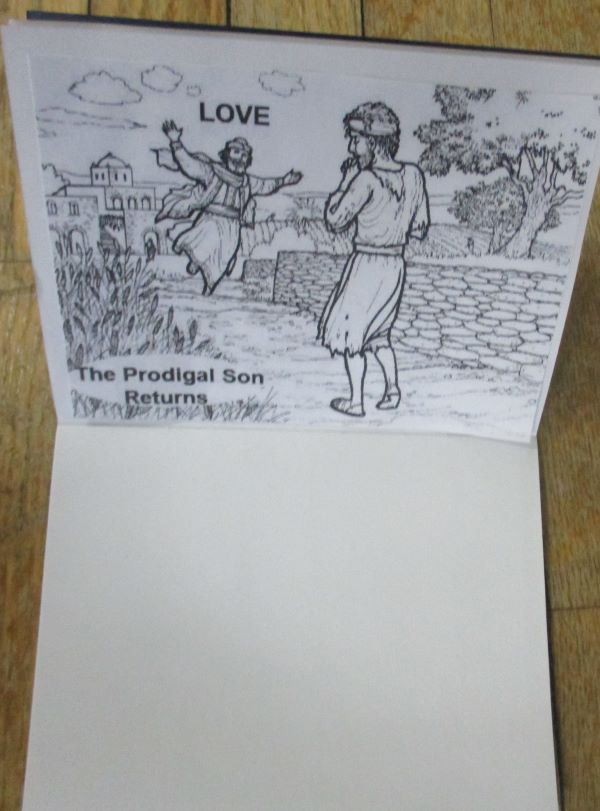 LOVE
The Prodigal Son
Returns